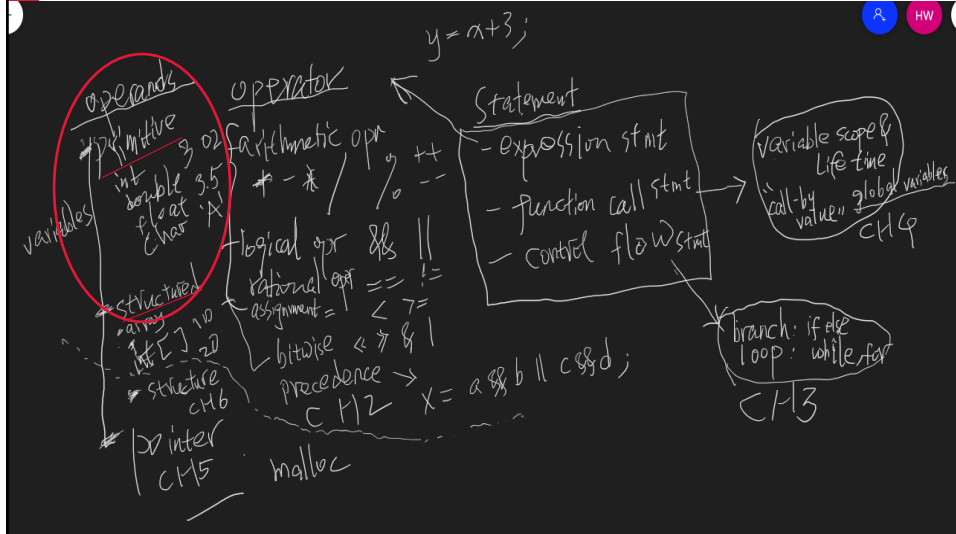 HW
y = x+3;
operands
primitive
int 3, 02
double 3.5
float
char 'A'
variables
structured
array
int [ ] 10
20
structure
CH6
pointer
CH5
malloc
operator
- arithmatic opr
+ - * / % ++ --
- logical opr && ||
rational opr == !=
assignment = < >=
- bitwise << >> & |
precedence →
CH2 x = a && b || c && d;
Statement
- expression stmt
- function call stmt
- control flow stmt
variable scope &
Life time
"call-by value" global variables
CH4
branch: if else
loop: while, for
CH3